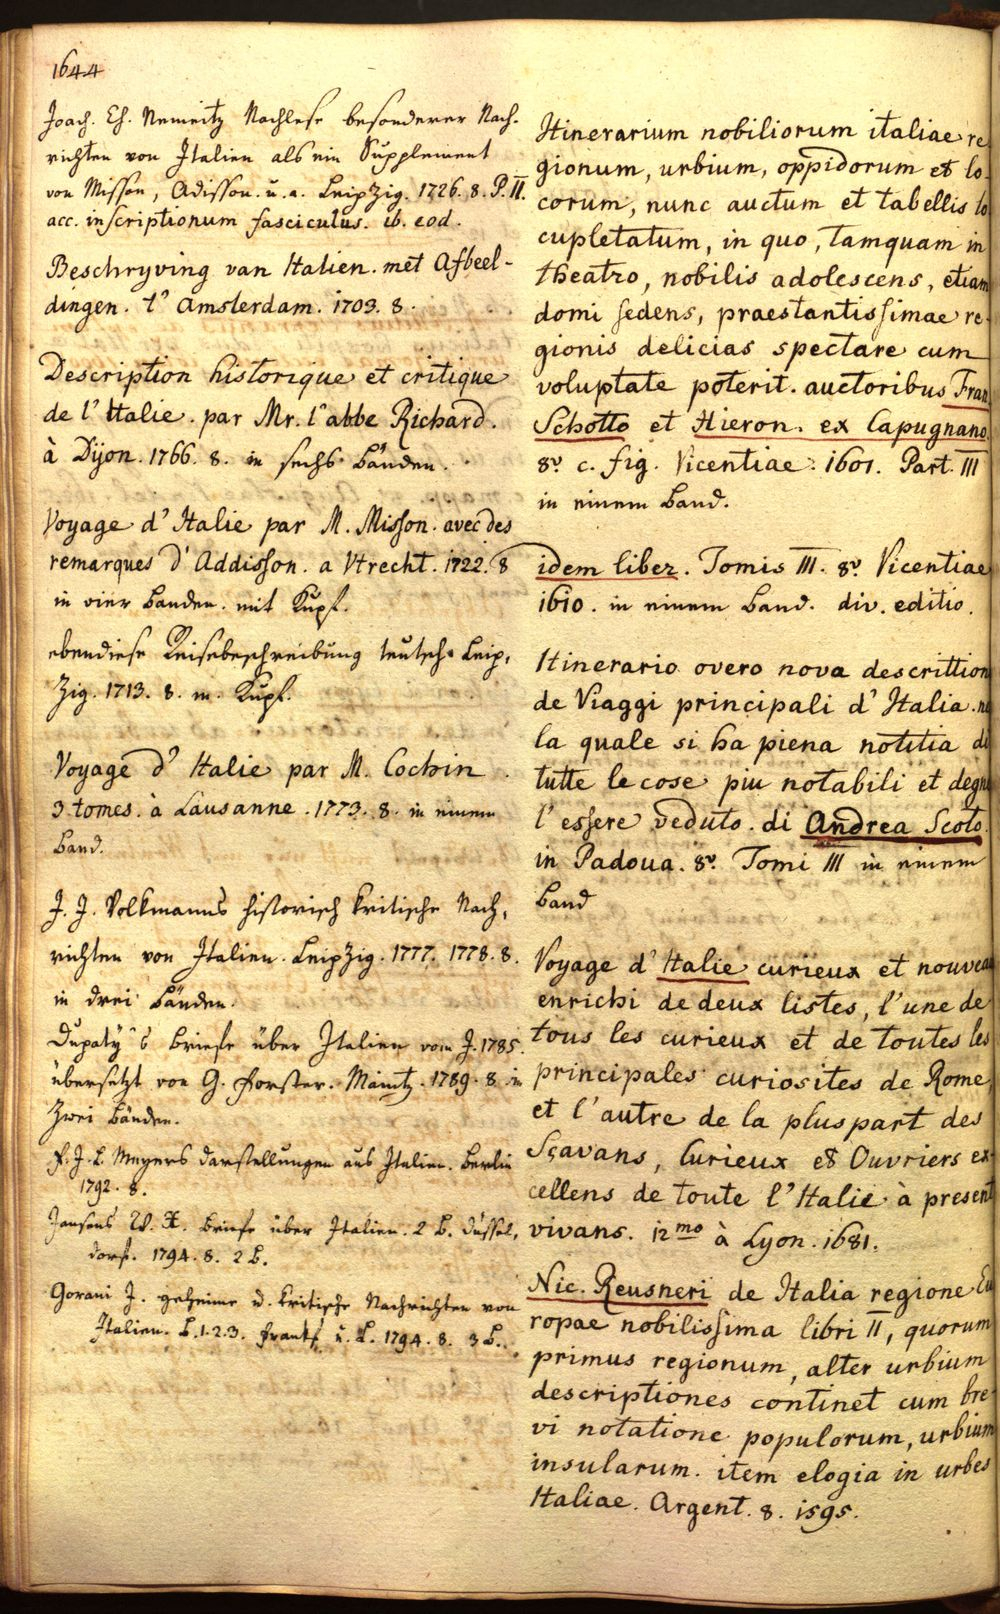 1644
Joach. Ch. Nemeitz Nachlese besonderer Nach-
richten von Italien als ein Supplement
von Misson, Adisson. u. a. Leipzig. 1726. 8. P. II.
acc. inscriptionum fasciculus. ib. eod.
Beschryving van Italien. met Afbeel-
dingen. t' Amsterdam. 1703. 8.
Description historique et critique
de l'Italie. par Mr. l'abbe Richard.
à Dijon. 1766. 8. in sechs Bänden.
Voyage d'Italie par M. Misson. avec des
remarques d'Addisson. a Vtrecht. 1722. 8
in vier Banden. mit Kupf.
ebendiese Reisebeschreibung teutsch. Leip,
zig. 1713. 8. m. Kupf.
Voyage d'Italie par M. Cochin.
3 tomes. à Lausanne. 1773. 8. in einem
Band.
J. J. Volkmanns historisch kritische Nach,
richten von Italien. Leipzig. 1777. 1778. 8.
in drei Bänden.
Dupaty's Briefe über Italien vom J. 1785.
übersetzt von G. Forster. Maintz. 1789. 8. in
zwei Bänden.
F. J. L. Meyers Darstellungen aus Italien. Berlin
1792. 8.
Jansens W. X. Briefe über Italien. 2 B. Düssel,
dorf. 1794. 8. 2 B.
Gorani J. geheime u. kritische Nachrichten von
Italien. B. 1. 2. 3. Frankf. u. L. 1794. 8. 3 B.
Itinerarium nobiliorum italiae re
gionum, urbium, oppidorum et lo-
corum, nunc auctum et tabellis lo
cupletatum, in quo, tamquam in
theatro, nobilis adolescens, etiam
domi sedens, praestantissimae re-
gionis delicias spectare cum
voluptate poterit. auctoribus Fran.
Schotto et Hieron. ex Capugnano.
8v. c. fig. Vicentiae. 1601. Part. III
in einem Band.
idem liber. Tomis III. 8v. Vicentiae
1610. in einem Band. div. editio.
Itinerario overo nova descrittion
de Viaggi principali d'Italia. ne
la quale si ha piena notitia di
tutte le cose piu notabili et degne
l'essere veduto. di Andrea Scoto.
in Padoua. 8v. Tomi III in einem
Band
Voyage d'Italie curieux et nouveau
enrichi de deux listes, l'une de
tous les curieux et de toutes les
principales curiosites de Rome
et l'autre de la pluspart des
Sçavans, Curieux et Ouvriers ex-
cellens de toute l'Italie à present
vivans. 12mo à Lyon. 1681.
Nic. Reusneri de Italia regione Eu
ropae nobilissima libri II, quorum
primus regionum, alter urbium
descriptiones continet cum bre-
vi notatione populorum, urbium
insularum. item elogia in urbes
Italiae. Argent. 8. 1595.